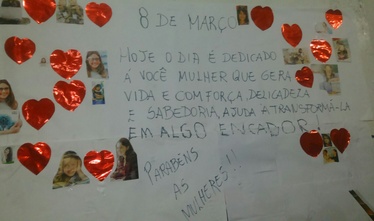 8 DE MARÇO
HOJE O DIA É DEDICADO
Á VOCÊ MULHER, QUE GERA
VIDA E COM FORÇA, DELICADEZA
E SABEDORIA, AJUDA A TRANSFORMÁ-LA
EM ALGO ENCADOR!
PARABÉNS
AS
MULHERES!!!